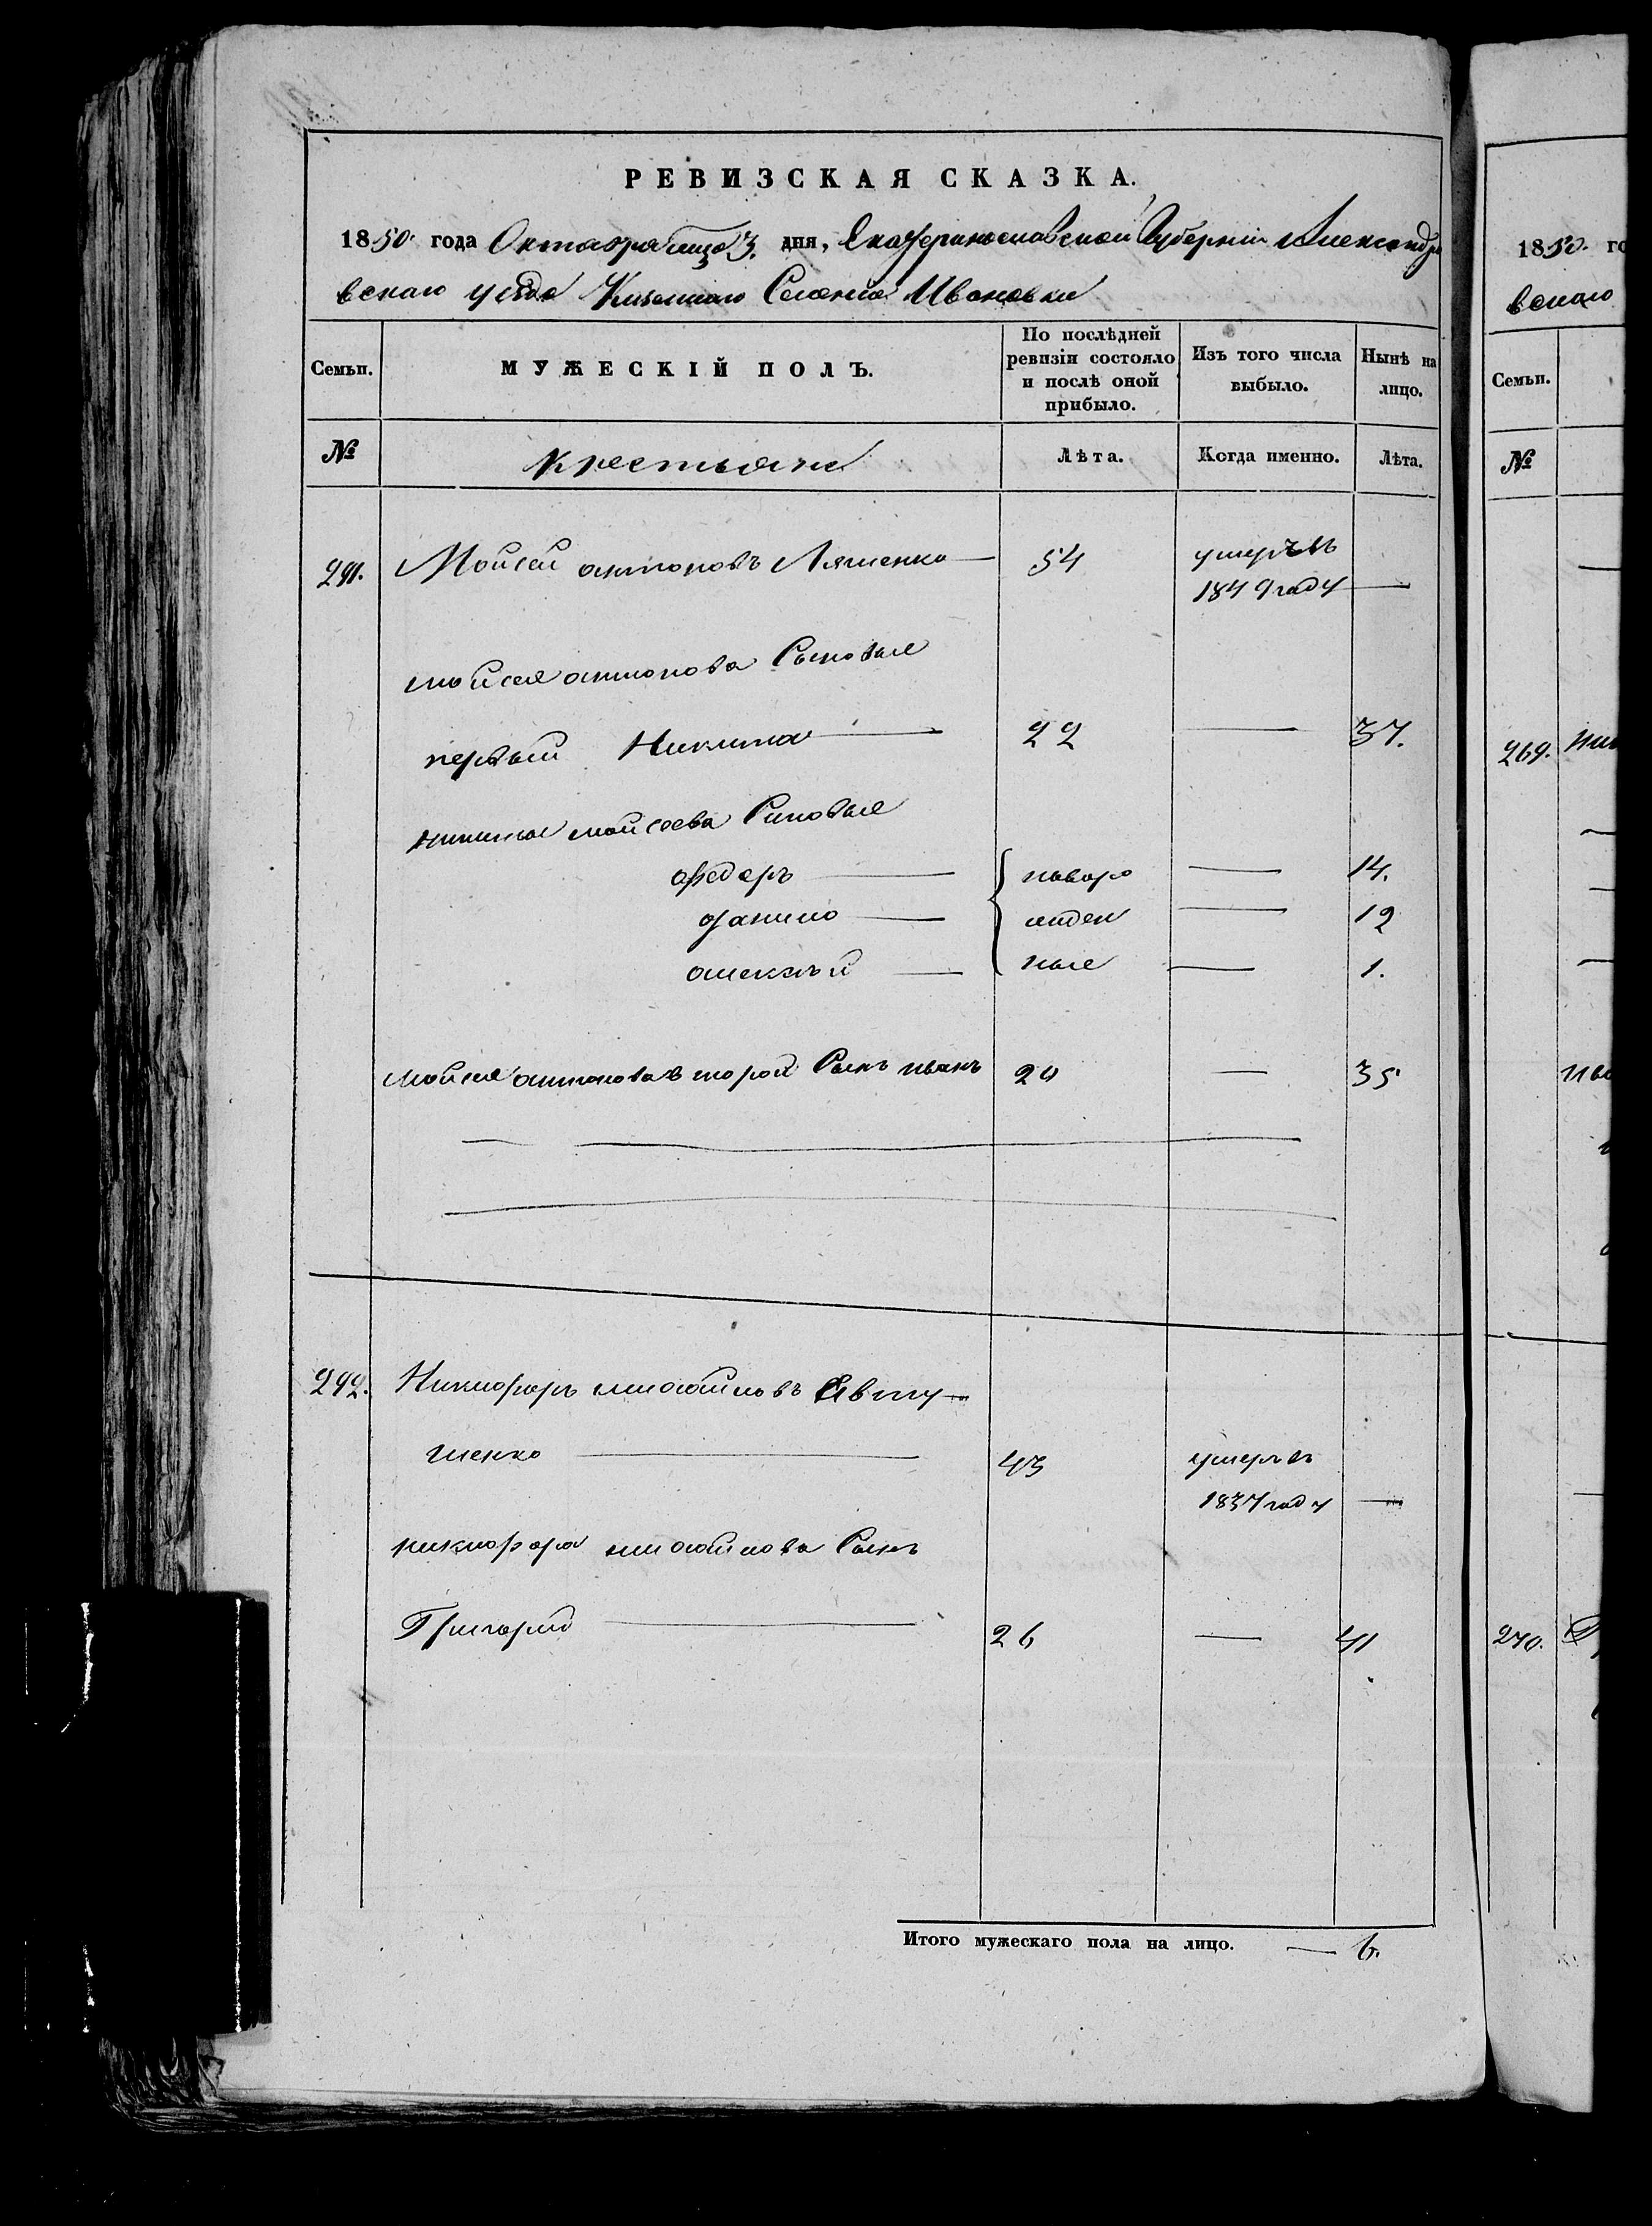 РЕВИЗСКАЯ СКАЗКА.
1850 года Октября мца 3. дня, Екатеринославской Губерніи Александро
вскаго уезда Селенія Ивановки
Семьи.
МУЖЕСКІЙ ПОЛЪ.
По послѣдней ревизіи состояло и послѣ оной прибыло.
Изъ того числа выбыло.
Нынѣ на лицо.
№
Крестьяне
Лѣта.
Когда именно.
Лѣта.
291. Мойсей антоновъ Ляшенко 54 умеръ въ
1849 году
мойсея антонова Сыновья
первый Никита 22 37.
никиты мойсеева Синовья
федоръ новоро 14.
данило жден 12
алексѣй ные 1.
мойсея антонова второй Сынъ иванъ 20 35
292. Никифоръ Евту
шенко 43 умеръ въ
1837 году
никифора Сынъ
Григорий 26 41
Итого мужескаго пола на лицо. 6.
1850. го
вскаго
Семьи.
№
269.
270.